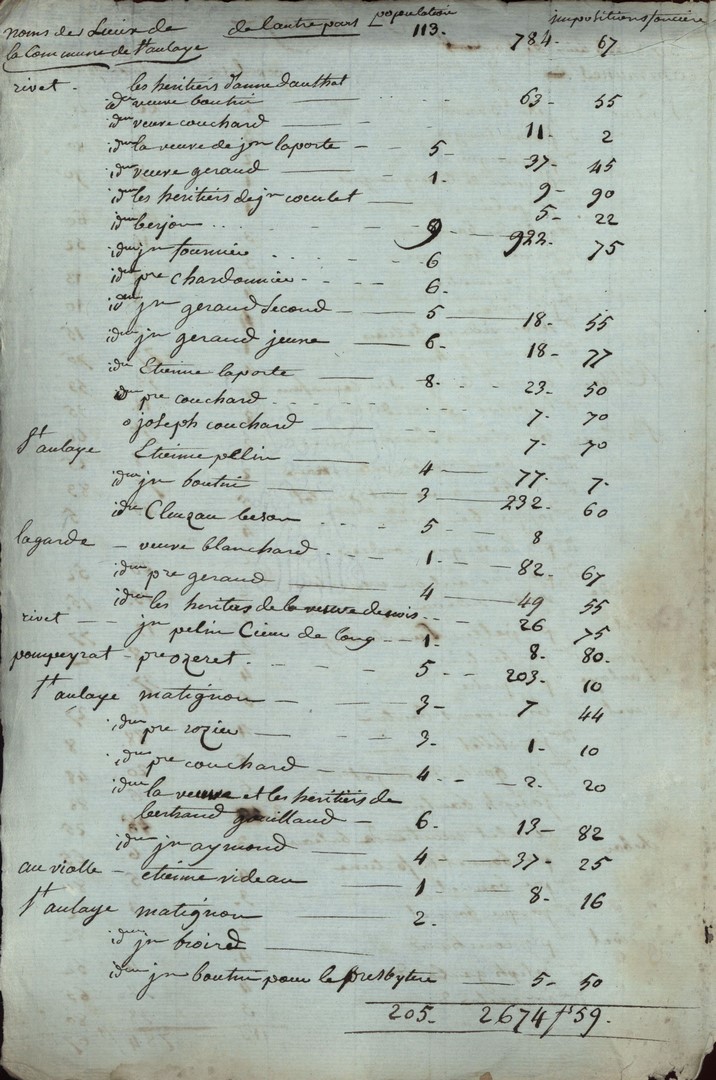 noms des Lieux de de l'autre part population impositions foncière
la Commune de St aulaye 113. 784. 67
rivet. les heritiers d'anne dauthat
idem veuve boutin 63. 55
idem veuve couchard 11. 2
idem la veuve de jn laporte 5. 37. 45
idem veuve geraud 1. 9. 90
idem les heritiers de jn coculet 5. 22
idem berjon 9 922. 75
idem jn fournier 6
idem pre chardonnier 6.
idem jn geraud second 5 18. 55
idem jn geraud jeune 6. 18. 77
idem Etienne laporte 8. 23. 50
idem pre couchard 7. 70
o joseph couchard 7. 70
St aulaye Etienne pellin 4 77. 7.
idem jn boutin 3 232. 60
idem Cluzau 5 8
lagarde veuve blanchard 1. 82. 67
idem pre geraud 4 49 55
idem les heritiers de la veuve 26 75
rivet jn pelin 1. 8. 80.
pompeyrat pre ozeret 5 203. 10
St aulaye matignon 3 7 44
idem pre rozier 3. 1. 10
idem pre couchard 4 2. 20
idem la veuve et les heritiers de
bertrand gouillaud 6. 13 82
idem jn aymond 4 37. 25
au vialle etienne videau 1 8. 16
St aulaye matignon 2.
idem jn
idem jn boutin pour le presbytere 5. 50
205. 2674 fs 59.